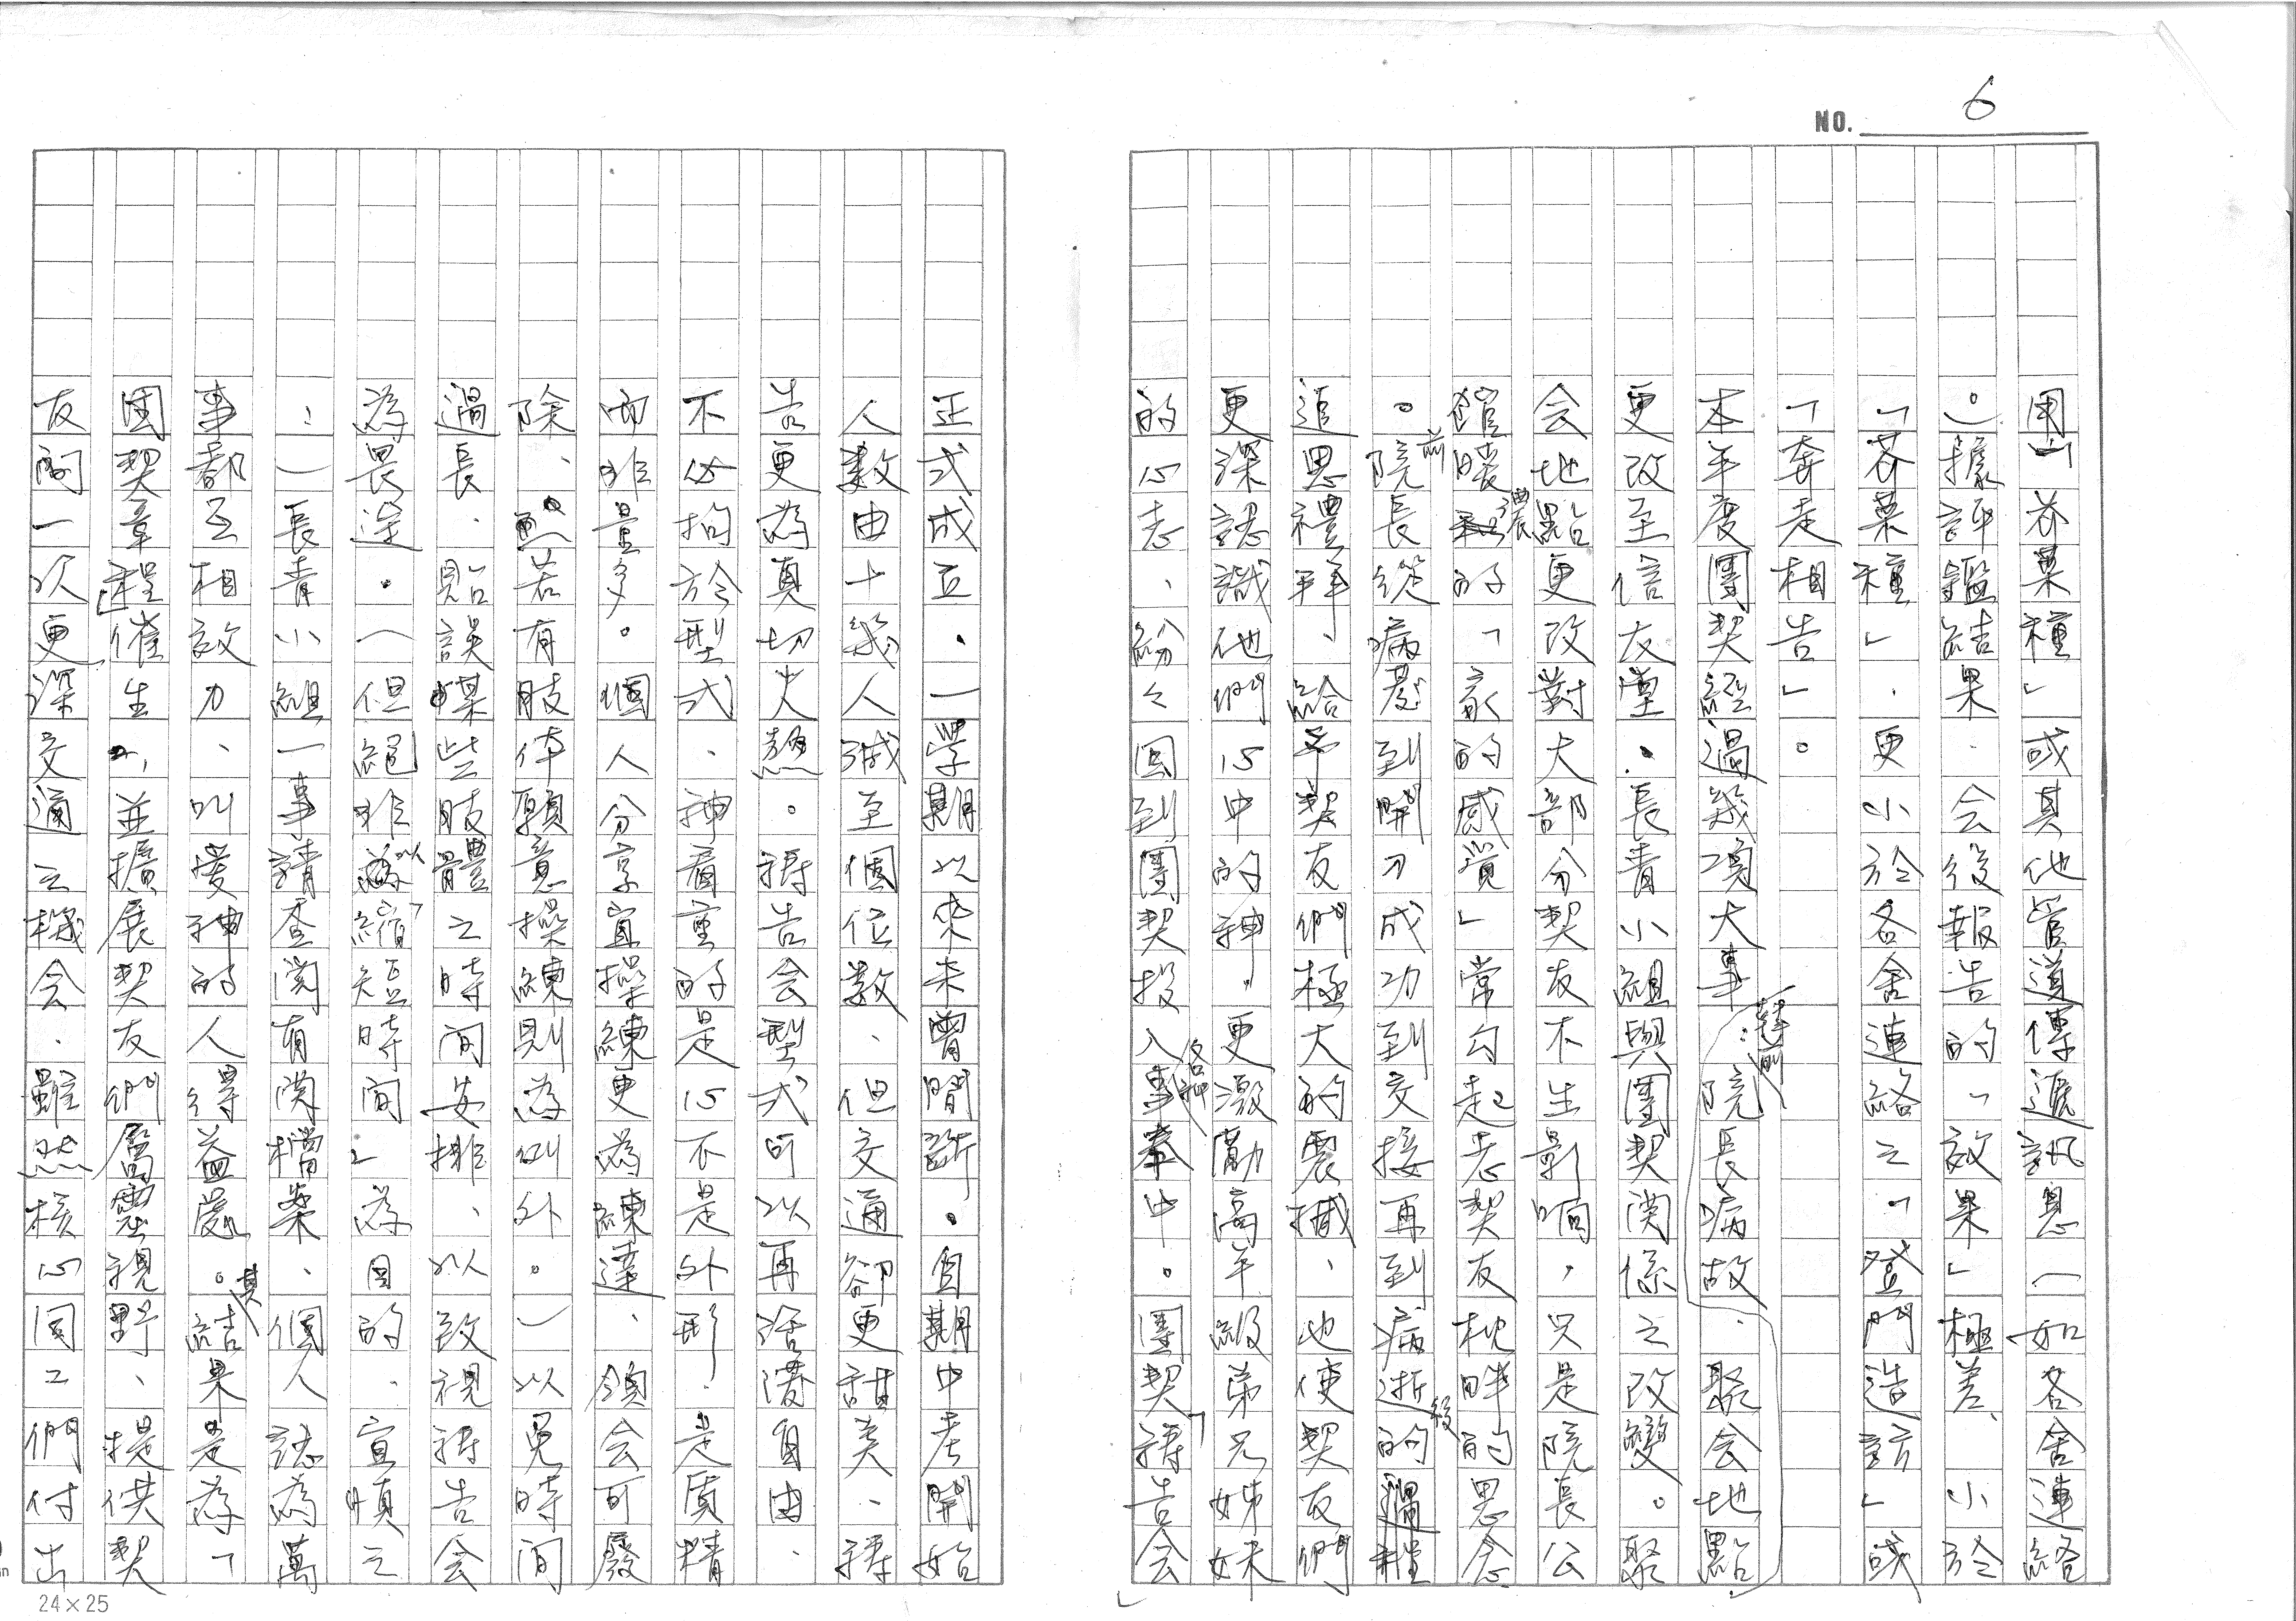 NO. 6
用「芥菜種」或其他管道傳遞訊息（如各舍連絡
）。據評鑑結果，会後報告的「效果」極差、小於
「芥菜種」，更小於各舍連絡之「登門造訪」或
「奔走相告」。
本年度團契經過幾項大事：院長病故，聚会地點
更改至信友堂，長青小組與團契関係之改變。聚
会地點更改對大部分契友不生影响，只是院長公
館暖濃的「家的感覺」常勾起老契友，枕畔的思念
。院長從病前到開刀成功到交接再到病逝的過程
追思禮拜、給予契友們極大的震撼、也使契友們
更深認識他們心中的神，更激勵高年級弟兄姊妹
的心志、紛々回到團契投入各种事奉中。團契「禱告会」
正式成立，一學期以來未曾間斷。自期中考開始
人數由十幾人減至個位數、但交通卻更甜美、禱
告更為真切火熱。禱告会型式可以再活潑自由，
不必拘於型式、神看重的是心不是外形，是質精
而非量多。個人分享宜操練更為練達、領会可廢
除、若有肢体願意操練則為例外。）以免時間
過長，貽誤某些肢體之時間安排、以致視禱告会
為畏途。（但絕非以「縮短時間」為目的，宜順之
：）長青小組一事請查閱有関檔案、個人認為萬
事都互相效力、叫愛神的人得益處。其結果是為「
團契章程」催生，並擴展契友們屬靈視野、提供契
友間一次更深交通之機会，雖然核心同工們付出
24×25